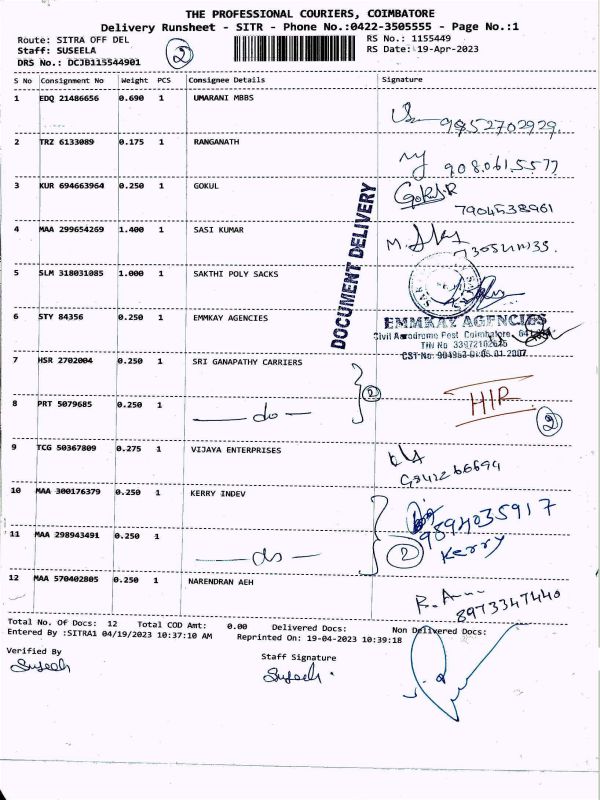 THE PROFESSIONAL COURIERS, COIMBATORE
Delivery Runsheet - SITR - Phone No.:0422-3505555 - Page No.:1
Route: SITRA OFF DEL RS No.: 1155449
Staff: SUSEELA 2 RS Date: 19-Apr-2023
DRS No.: DCJB115544901
S No Consignment No Weight PCS Consignee Details Signature
1 EDQ 21486656 0.690 1 UMARANI MBBS
9952702929.
2 TRZ 6133089 0.175 1 RANGANATH
9080615577
3 KUR 694663964 0.250 1 GOKUL Gokul.R
7904538961
4 MAA 299654269 1.400 1 SASI KUMAR
DOCUMENT DELIVERY
5 SLM 318031085 1.000 1 SAKTHI POLY SACKS
6 STY 84356 0.250 1 EMMKAY AGENCIES
EMMKAY AGENCIES
Civil Aerodrome Post Coimbatore,
TIN No 33972102675
CST No:
7 HSR 2702004 0.250 1 SRI GANAPATHY CARRIERS
2 HIR
8 PRT 5079685 0.250 1 do 2
9 TCG 50367809 0.275 1 VIJAYA ENTERPRISES
10 MAA 300176379 0.250 1 KERRY INDEV
9894035917
11 MAA 298943491 0.250 1
do 2 Kerry
12 MAA 570402805 0.250 1 NARENDRAN AEH
8973347440
Total No. Of Docs: 12 Total COD Amt: 0.00 Delivered Docs: Non Delivered Docs:
Entered By :SITRA1 04/19/2023 10:37:10 AM Reprinted On: 19-04-2023 10:39:18
Verified By Staff Signature
Suseela Suseela